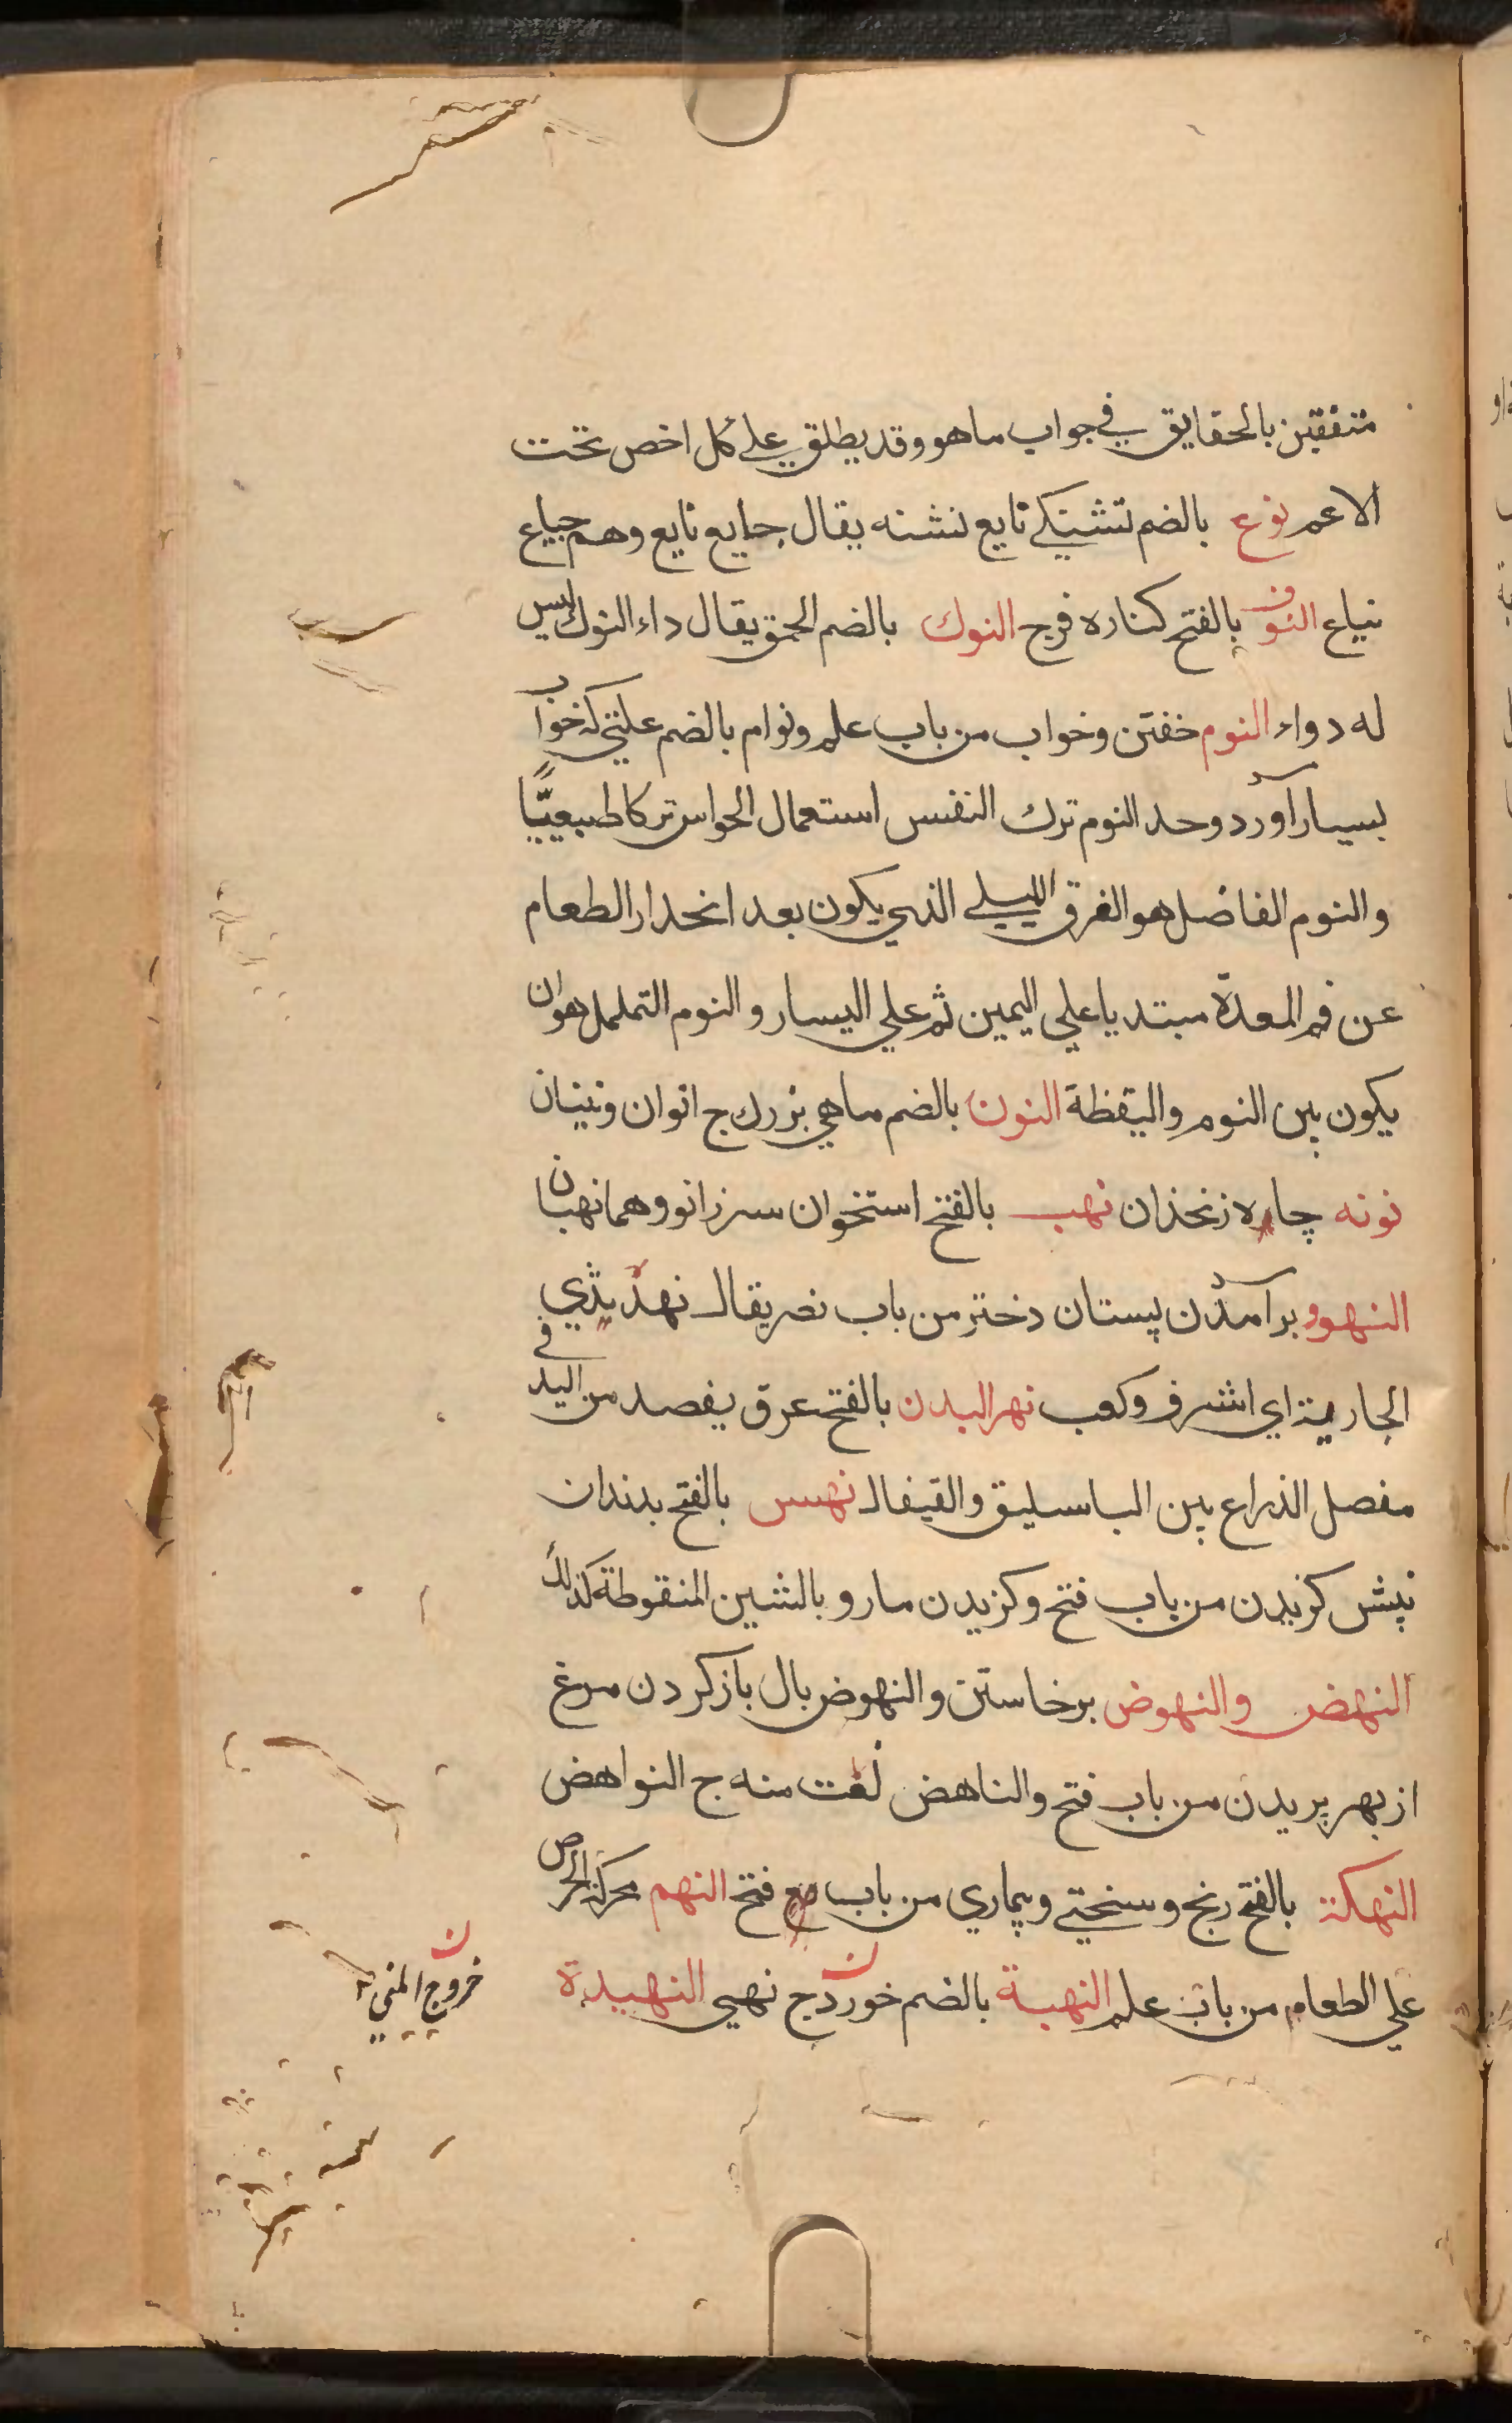 متفقين بالحقايق في جواب ما هو وقد يطلق علي كل اخص تحت
الاعم نوع بالضم تشنكي نايع تشنه يقال جايع نايع وهم جياع
نياع النوف بالفتح كناره فرج النوك بالضم الحمق يقال داء النوك ليس
له دواء النوم خفتن وخواب من باب علم ونوام بالضم علتي كه خواب
بسيار آورد وحد النوم ترك النفس استعمال الحواس تركا طبيعيًّا
والنوم الفاضل هو الغرق الليلي الذي يكون بعد انحدار الطعام
عن فم المعدة مبتديا علي اليمين ثم علي اليسار والنوم التململ هو ان
يكون بين النوم واليقظة النون بالضم ماهي بزرك ج انوان ونينان
نونه چاه زنخذان نهب بالفتح استخوان سر زانو وهما نهبان
النهود برآمدن پستان دختر من باب نصر يقال نهد ثدي
الجارية اي اشرف وكعب نهر البدن بالفتح عرق يفصد من اليد في
مفصل الذراع بين الباسليق والقيفال نهس بالفتح بدندان
نيش كزيدن من باب فتح وكزيدن مار و بالشين المنقوطة كذلك
النهض والنهوض برخاستن والنهوض بال باز كردن مرغ
از بهر پريدن من باب فتح والناهض نعت منه ج النواهض
النهكة بالفتح رنج وسختي وبيماري من باب فتح النهم محركة الحرص
علي الطعام من باب علم النهية بالضم خورد ج نهي النهيدة
خروج المني